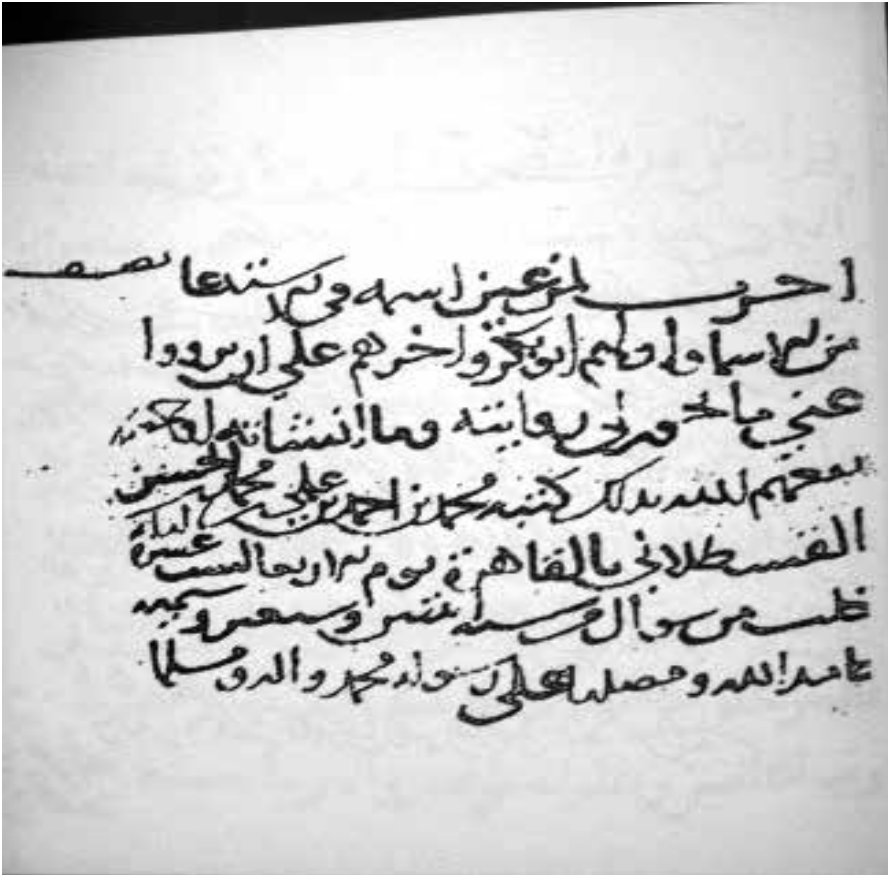 اجزت لمن عين اسمه في الاستدعا
من الاسما واولهم ابو بكر واخرهم علي ان يرووا
عني ما يجوز لي روايته وما انشاته
نفعهم الله بذلك كتبه محمد بن احمد بن علي بن محمد بن الحسن
القسطلاني بالقاهرة يوم الاربعا لست عشرة ليلة
خلت من شوال سنة اثنين وسبعين وستمية
حامدا لله ومصليا على رسوله محمد واله ومسلما